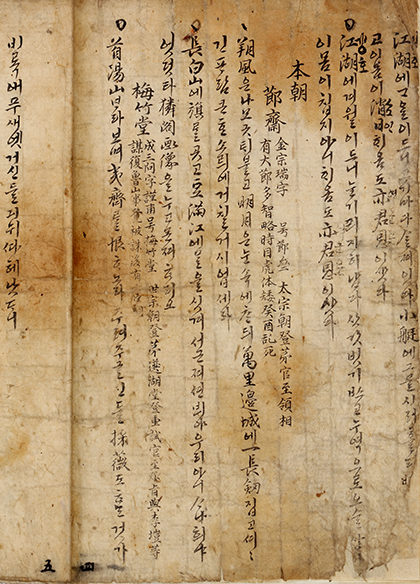 江湖에 ᄀᆞ을이 드니 고기마다 ᄉᆞᆯ져 잇다 小艇에 그믈 시러
이 몸이 消日ᄒᆡ옴도 亦君恩이샷다
江湖에 겨월이 드니 눈 기픠 자히 남다 삿갓 빗기 ᄡᅳ고 누역으로 오슬
이 몸이 칩지 아니ᄒᆡ옴도 亦君恩이샷다
本朝
節齋 金宗瑞字 号節齋 太宗朝登第官至領相
有大節多智略時目虎体矮癸酉乱死
朔風은 나모 긋ᄐᆡ 불고 明月은 눈 속에 ᄎᆞᆫᄃᆡ 萬里邊城에 一長劒 집고 셔셔
긴 ᄑᆞ람 큰 ᄒᆞᆫ 소ᄅᆡ에 거칠 거시 업세라
長白山에 旗를 곳고 豆滿江에 ᄆᆞᆯ을 싯겨 서근 져 션ᄇᆡ야 우리 아니 ᄉᆞ나희냐
엇덧타 獜閣畵像을 누고 몬져 ᄒᆞ리오
梅竹堂 成三問字謹甫号梅竹堂 世宗朝登第選湖堂登重試官至承旨與李塏等
謀復魯山事發被誅
首陽山 ᄇᆞ라보며 夷齊를 恨ᄒᆞ노라 주려 주글진들 採薇도 ᄒᆞᄂᆞᆫ것가
비록애 푸새엣 거신들 긔 뉘 ᄯᅡ헤 낫ᄃᆞ니
四
五